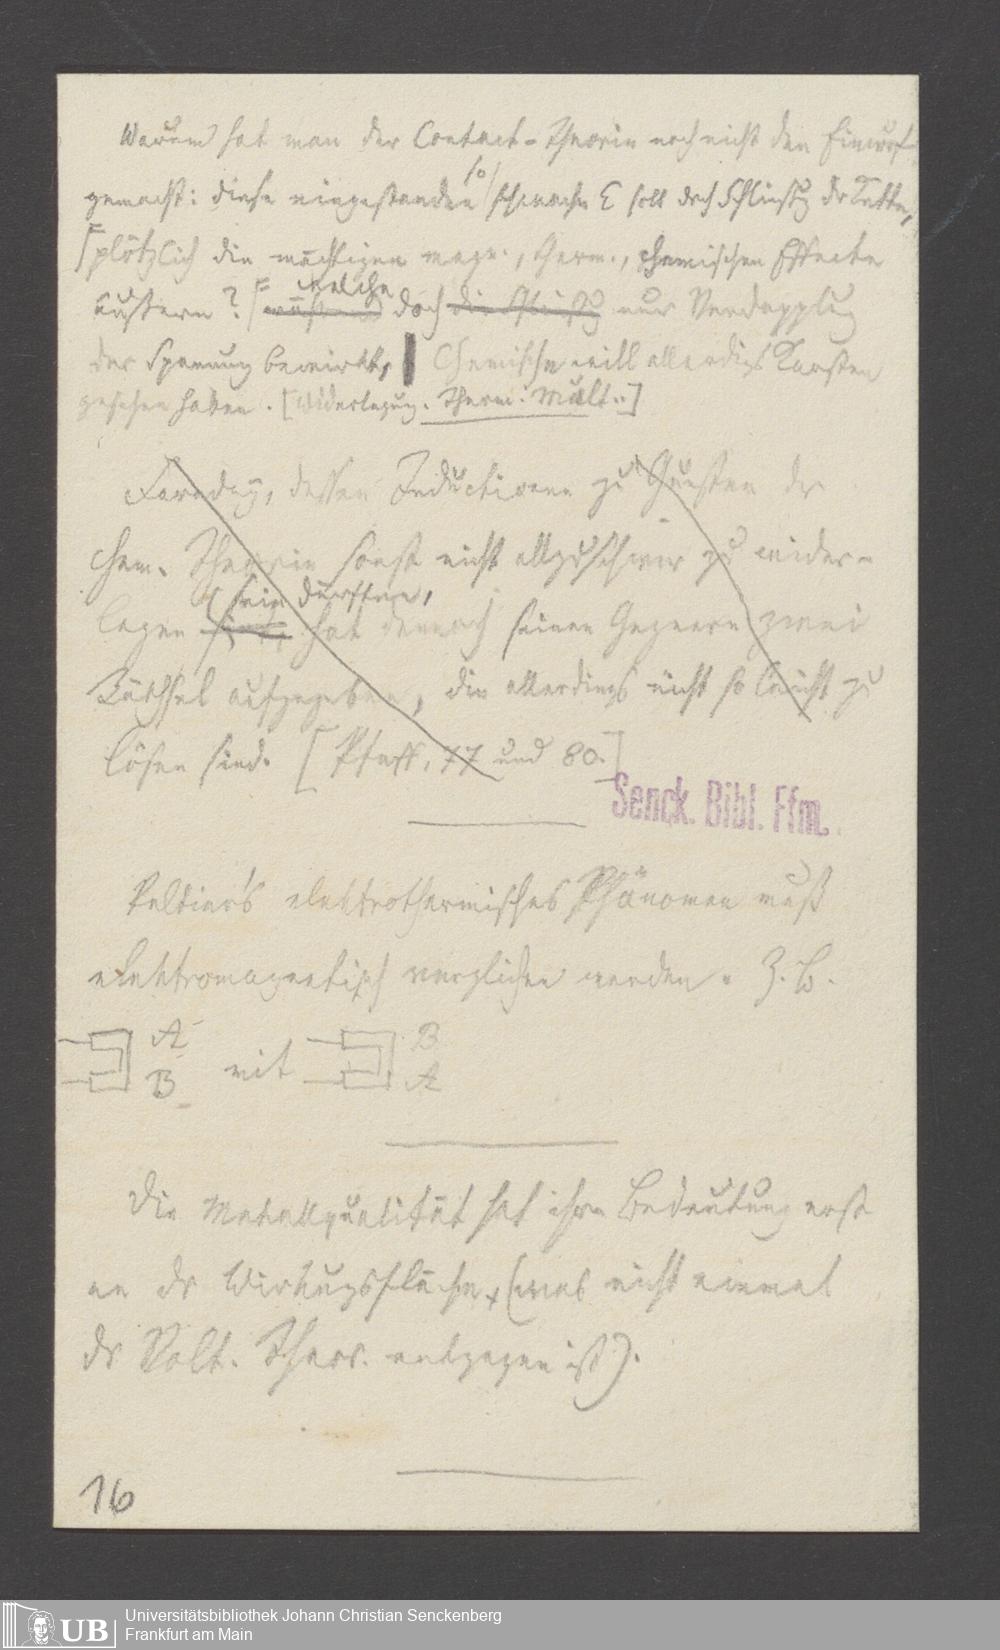 Warum hat man der Contact-Theorie noch nicht den Einwurf
gemacht: diese eingestanden so schwache E soll durch Schließg der Kette,
plötzlich die mächtigen magn., therm., chemischen Effecte
äußern? welche doch die Schließg nur Verdopplug
der Spannung bewirkt, Chemische will allerdigs Karsten
gesehen haben. [Widerlegug. Therm. Mult..]
Faraday, dessen Inductionen zu Gunsten der
chem. Theorie sonst nicht allzuschwer zu wider-
legen sind, sein dürften, hat dennoch seinen Gegnern zwei
Räthsel aufgegeben, die allerdings nicht so leicht zu
lösen sind. [Pfaff, 77 und 80.]
Senck. Bibl. Ffm.
Peltier's elektrothermisches Phänomen muß
elektromagnetisch verglichen werden. Z. B.
A B mit B A
Die Metallqualität hat ihre Bedeutung erst
an dr Wirkugsfläche, (was nicht einmal
dr Volt. Theor. entgegen ist).
16
UB
Universitätsbibliothek Johann Christian Senckenberg
Frankfurt am Main